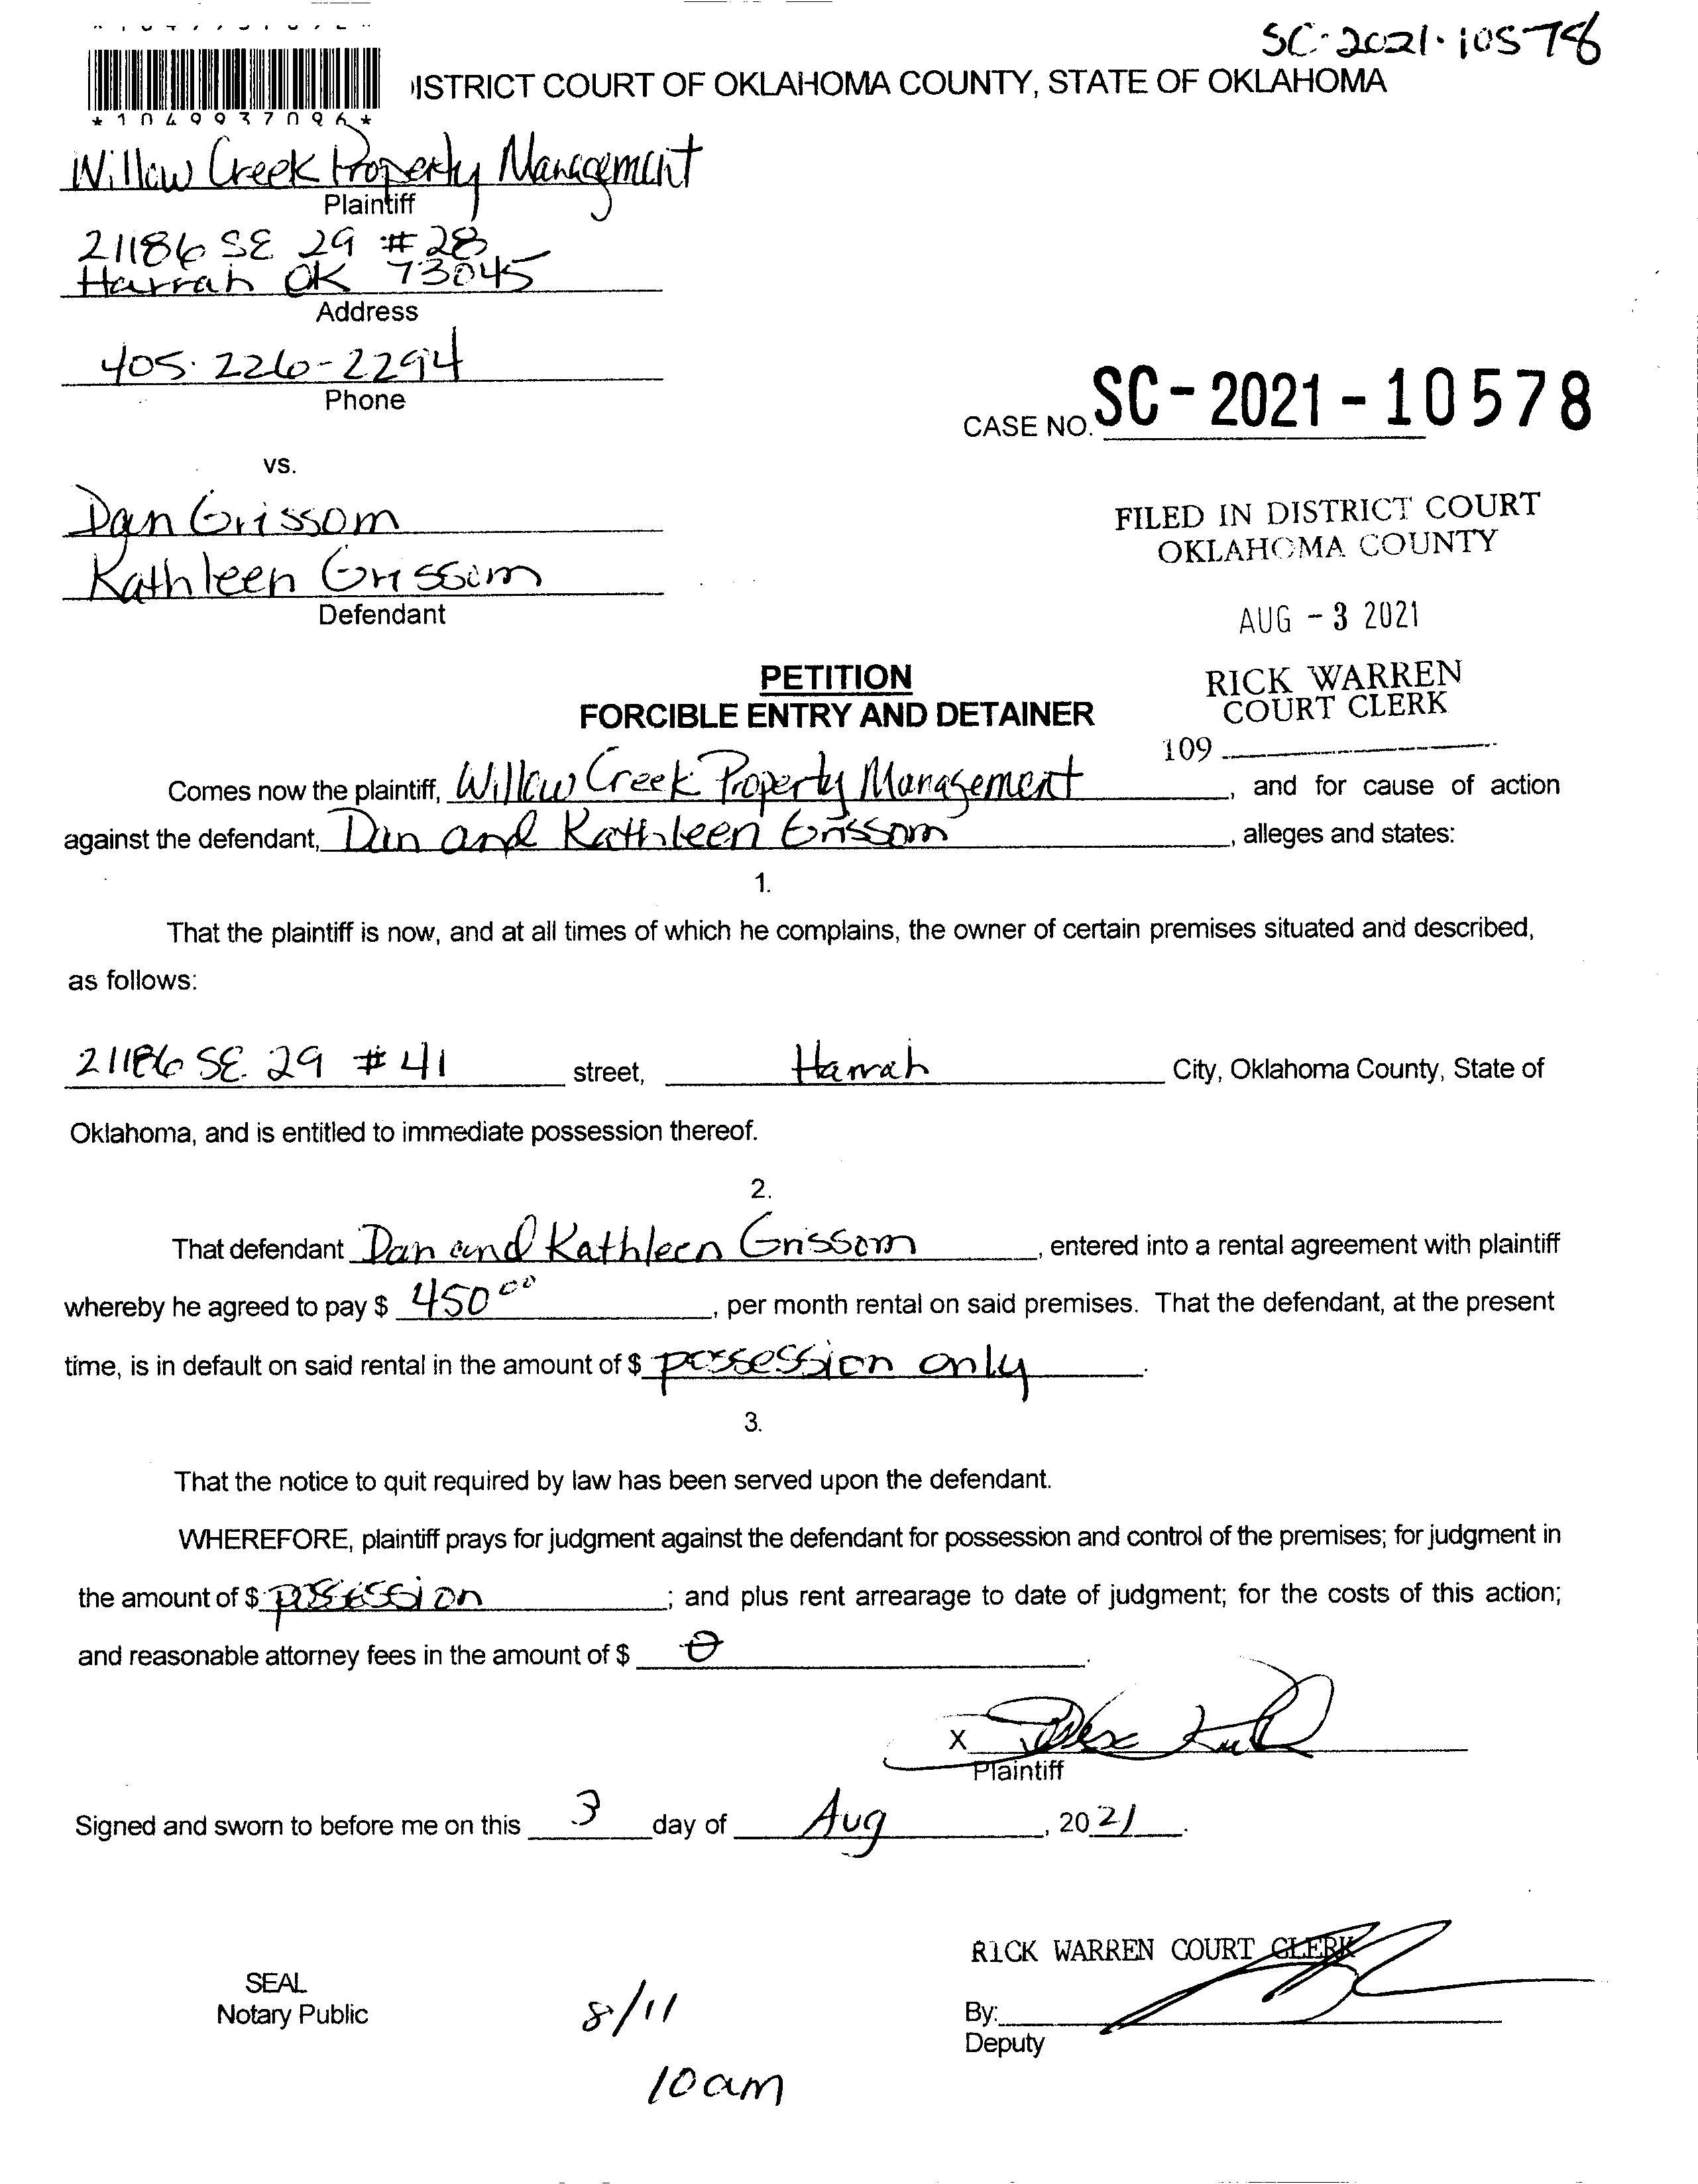 SC-2021-10578
ISTRICT COURT OF OKLAHOMA COUNTY, STATE OF OKLAHOMA
*1049937096*
Willow Creek Property Management
Plaintiff
21186 SE 29 #28
Harrah OK 73045
Address
405-226-2294
Phone
CASE NO. SC-2021-10578
vs.
Dan Grissom
Kathleen Grissom
Defendant
FILED IN DISTRICT COURT
OKLAHOMA COUNTY
AUG - 3 2021
RICK WARREN
COURT CLERK
109
PETITION
FORCIBLE ENTRY AND DETAINER
Comes now the plaintiff, Willow Creek Property Management, and for cause of action
against the defendant, Dan and Kathleen Grissom, alleges and states:
1.
That the plaintiff is now, and at all times of which he complains, the owner of certain premises situated and described,
as follows:
21186 SE 29 #41 street, Harrah City, Oklahoma County, State of
Oklahoma, and is entitled to immediate possession thereof.
2.
That defendant Dan and Kathleen Grissom, entered into a rental agreement with plaintiff
whereby he agreed to pay $ 450 00, per month rental on said premises. That the defendant, at the present
time, is in default on said rental in the amount of $ possession only.
3.
That the notice to quit required by law has been served upon the defendant.
WHEREFORE, plaintiff prays for judgment against the defendant for possession and control of the premises; for judgment in
the amount of $ possession; and plus rent arrearage to date of judgment; for the costs of this action;
and reasonable attorney fees in the amount of $ 0.
X
Plaintiff
Signed and sworn to before me on this 3 day of Aug, 2021.
RICK WARREN COURT CLERK
SEAL
Notary Public
8/11
10am
By:
Deputy